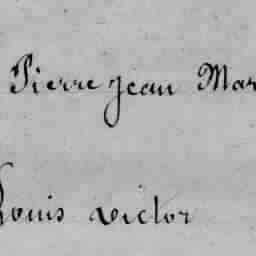 Pierre Jean Mar
Louis victor